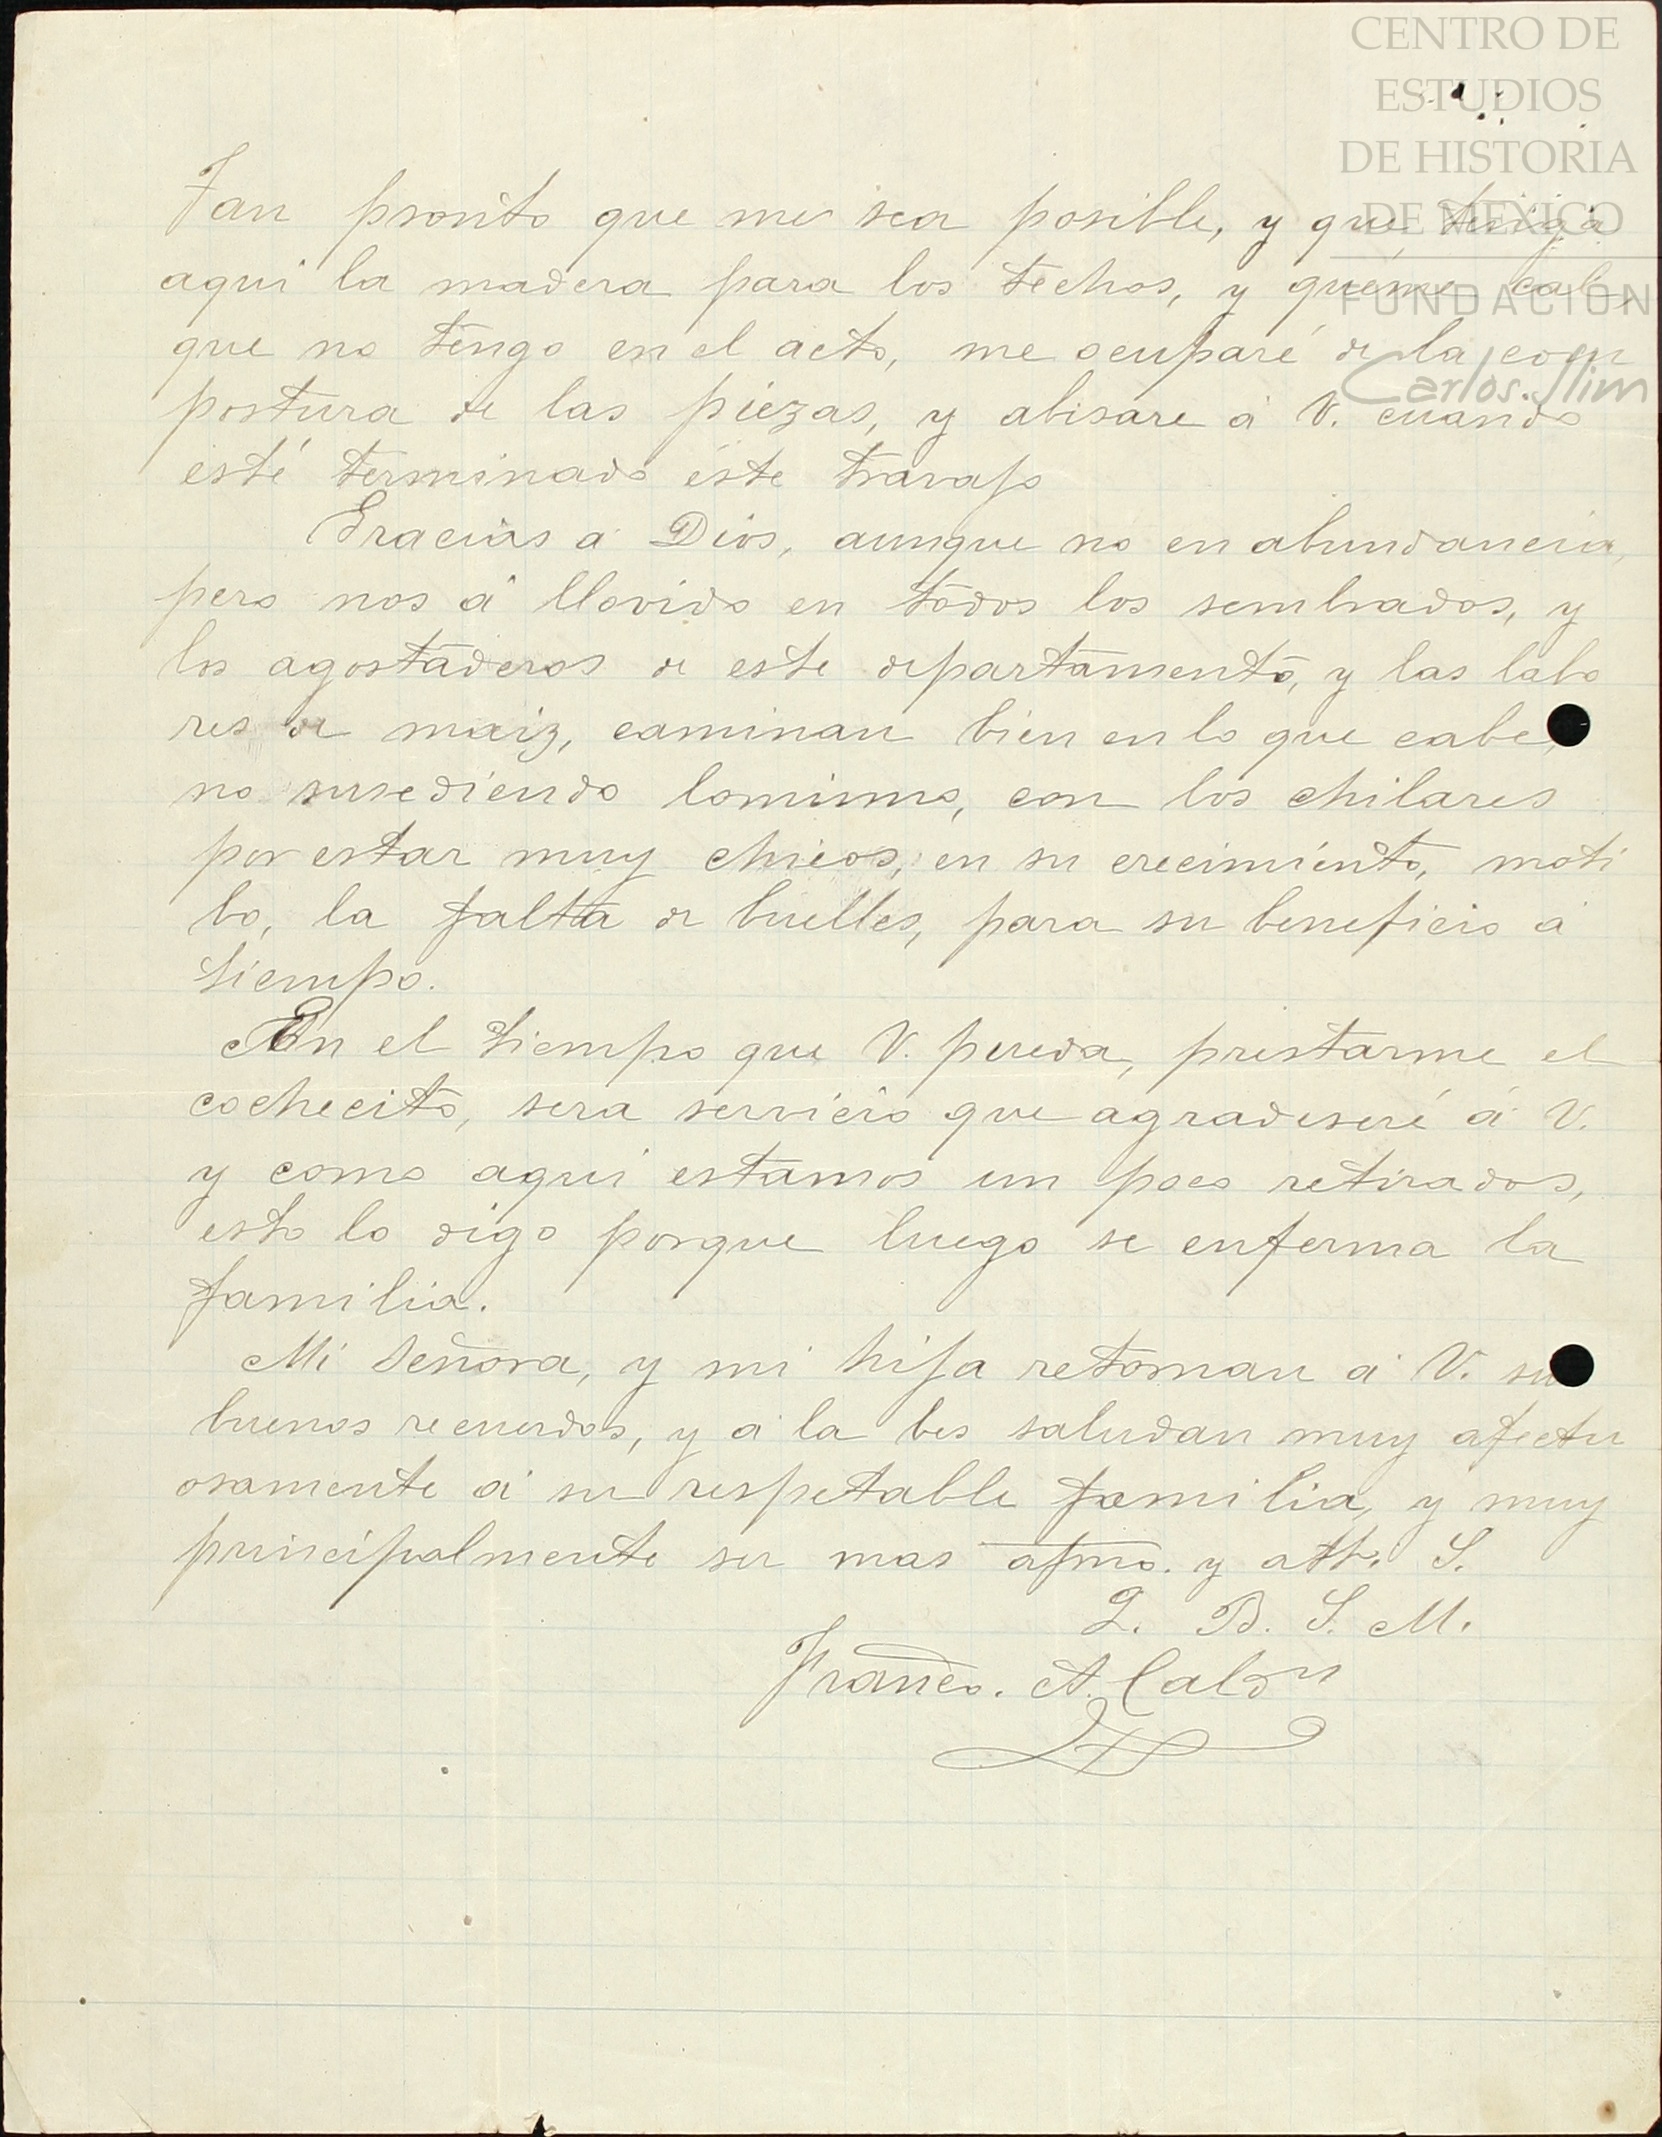 CENTRO DE
ESTUDIOS
DE HISTORIA
DE MEXICO
FUNDACION
Carlos Slim
Tan pronto que me sea posible, y que tenga
aqui la madera para los techos, y queme cal,
que no tengo en el acto, me ocuparé de la com
postura de las piezas, y abisare á V. cuando
esté terminado este travajo
Gracias a Dios, aunque no en abundancia,
pero nos á llovido en todos los sembrados, y
los agostaderos de este departamento, y las labo
res de maiz, caminan bien en lo que cabe,
no susediendo lomismo, con los chilares
por estar muy chicos, en su crecimiento, moti
bo, la falta de buelles, para su beneficio á
tiempo.
En el tiempo que V. pueda, prestarme el
cochecito, sera servicio que agradeseré á V.
y como aqui estamos un poco retirados,
esto lo digo porque luego se enferma la
familia.
Mi Señora, y mi hija retornan a V. su
buenos recuerdos, y a la bes saludan muy afectu
osamente á su respetable familia, y muy
principalmente su mas afmo. y att. S.
Q. B. S. M.
Franco. A. Caldn